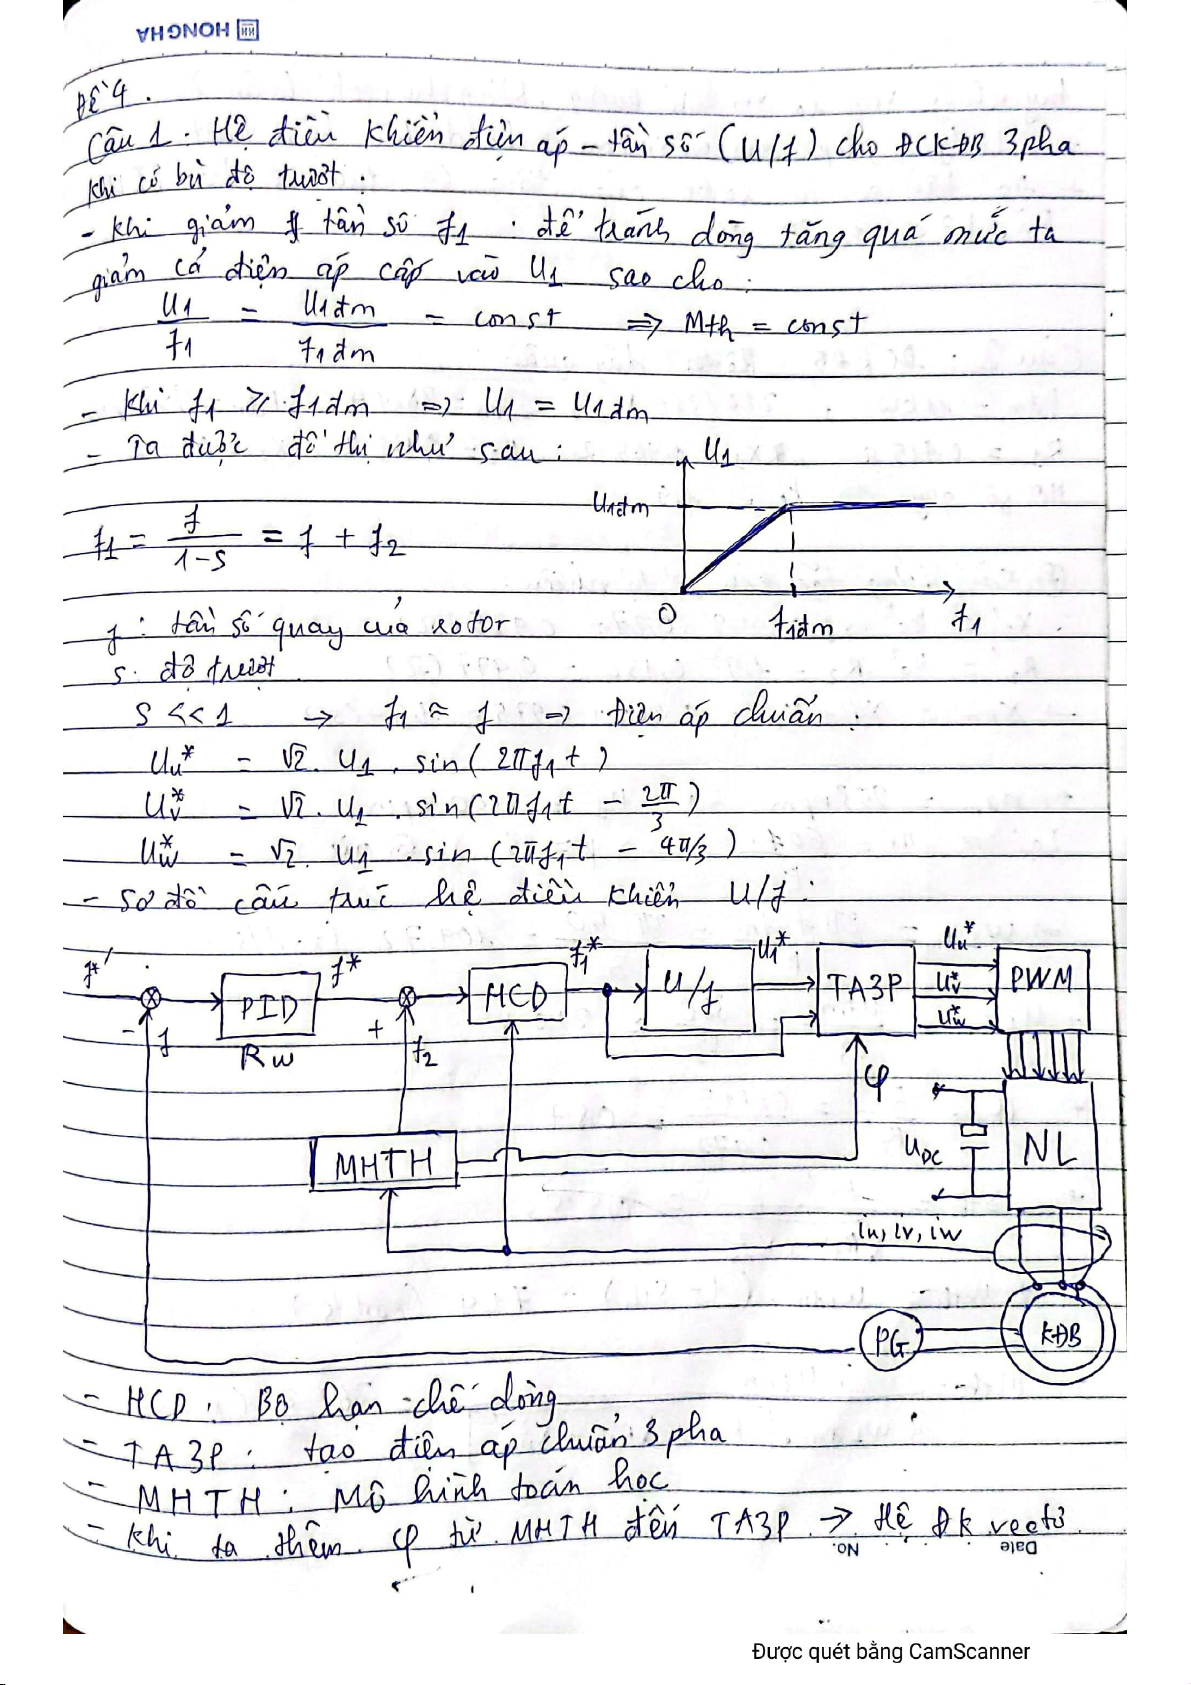 HONGHA
Đề 4.
Câu 1. Hệ điều khiển điện áp – tần số (U/f) cho ĐCKĐB 3pha
khi có bù độ trượt.
- Khi giảm tần số f1. để tránh dòng tăng quá mức ta
giảm cả điện áp cấp vào U1 sao cho:
U1/f1 = U1đm/f1đm = const => Mth = const
- Khi f1 ≥ f1đm => U1 = U1đm
- Ta được đồ thị như sau:
U1
U1đm
f1 = f/(1-s) = f + f2
O f1đm f1
f: tần số quay của rotor
s. độ trượt
s << 1 -> f1 ≈ f => Điện áp chuẩn:
Uu* = √2. U1. sin(2πf1t)
Uv* = √2. U1. sin(2πf1t - 2π/3)
Uw* = √2. U1. sin(2πf1t - 4π/3)
- Sơ đồ cấu trúc hệ điều khiển U/f:
f*' f* f1* U1* Uu*
PID HCD U/f TA3P Uv* PWM
Uw*
- f Rw + f2 φ
MHTH UDC NL
iu, iv, iw
PG KĐB
- HCD: Bộ hạn chế dòng
- TA3P: tạo điện áp chuẩn 3pha
- MHTH: Mô hình toán học
- Khi ta thêm φ từ MHTH đến TA3P -> Hệ ĐK vectơ
No. Date
Được quét bằng CamScanner